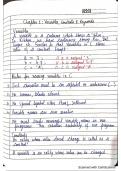 Chapter 1 : Variables, Constants & Keywords
Variables
A variable is a container which stores a 'value'.
In kitchen, we have containers storing Rice, Dal,
Sugar etc. Similar to that Variables in C stores
value of a constant
a = 3 ;
b = 4.7 ;
c = 'A' ;
Rules for naming variables in C
First character must be an alphabet or underscore (_)
No commas, blanks allowed.
No special symbol other than (_) allowed
Variable names are case sensitive
We must create meaningful variable names in our
programs. This enhances readability of our programs
Constants
An entity whose value doesn't change is called as a
constant.
A variable is an entity whose value can be changed.
Scanned with CamScanner